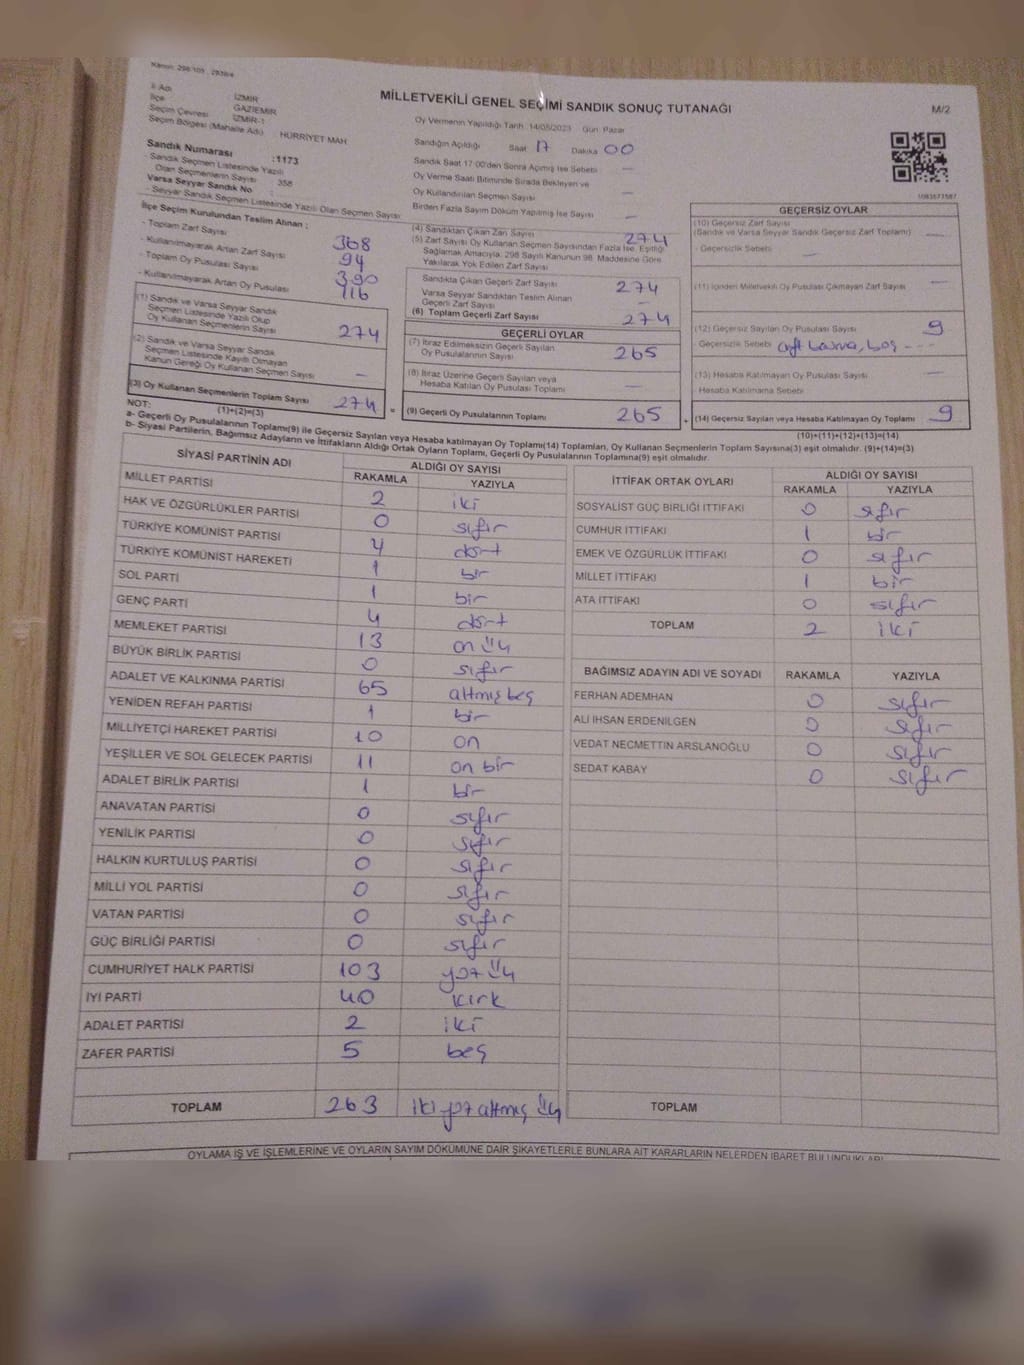 Kanun: 298/105 , 2839/4
İl Adı : İZMİR
İlçe : GAZİEMİR
Seçim Çevresi : İZMİR-1
Seçim Bölgesi (Mahalle Adı) : HÜRRİYET MAH
Sandık Numarası :1173
- Sandık Seçmen Listesinde Yazılı Olan Seçmenlerin Sayısı : 358
Varsa Seyyar Sandık No :
- Seyyar Sandık Seçmen Listesinde Yazılı Olan Seçmen Sayısı:
MİLLETVEKİLİ GENEL SEÇİMİ SANDIK SONUÇ TUTANAĞI
M/2
Oy Vermenin Yapıldığı Tarih :14/05/2023 Gün: Pazar
Sandığın Açıldığı Saat 17 Dakika 00
Sandık Saat 17:00'den Sonra Açılmış İse Sebebi —
Oy Verme Saati Bitiminde Sırada Bekleyen ve
Oy Kullandırılan Seçmen Sayısı —
Birden Fazla Sayım Döküm Yapılmış İse Sayısı —
İlçe Seçim Kurulundan Teslim Alınan :
- Toplam Zarf Sayısı 368
- Kullanılmayarak Artan Zarf Sayısı 94
- Toplam Oy Pusulası Sayısı 390
- Kullanılmayarak Artan Oy Pusulası 116
(1) Sandık ve Varsa Seyyar Sandık
Seçmen Listesinde Yazılı Olup
Oy Kullanan Seçmenlerin Sayısı 274
(2) Sandık ve Varsa Seyyar Sandık
Seçmen Listesinde Kayıtlı Olmayan
Kanun Gereği Oy Kullanan Seçmen Sayısı —
(3) Oy Kullanan Seçmenlerin Toplam Sayısı 274
(1)+(2)=(3)
(4) Sandıktan Çıkan Zarf Sayısı 274
(5) Zarf Sayısı Oy Kullanan Seçmen Sayısından Fazla İse, Eşitliği
Sağlamak Amacıyla, 298 Sayılı Kanunun 98. Maddesine Göre
Yakılarak Yok Edilen Zarf Sayısı
Sandıkta Çıkan Geçerli Zarf Sayısı 274
Varsa Seyyar Sandıktan Teslim Alınan
Geçerli Zarf Sayısı —
(6) Toplam Geçerli Zarf Sayısı 274
GEÇERLİ OYLAR
(7) İtiraz Edilmeksizin Geçerli Sayılan
Oy Pusulalarının Sayısı 265
(8) İtiraz Üzerine Geçerli Sayılan veya
Hesaba Katılan Oy Pusulası Toplamı —
= (9) Geçerli Oy Pusulalarının Toplamı 265 +
GEÇERSİZ OYLAR
(10) Geçersiz Zarf Sayısı
(Sandık ve Varsa Seyyar Sandık Geçersiz Zarf Toplamı) —
- Geçersizlik Sebebi —
(11) İçinden Milletvekili Oy Pusulası Çıkmayan Zarf Sayısı —
(12) Geçersiz Sayılan Oy Pusulası Sayısı 9
Geçersizlik Sebebi çift basma, boş - - -
(13) Hesaba Katılmayan Oy Pusulası Sayısı —
- Hesaba Katılmama Sebebi
(14) Geçersiz Sayılan veya Hesaba Katılmayan Oy Toplamı 9
(10)+(11)+(12)+(13)=(14)
NOT:
a- Geçerli Oy Pusulalarının Toplamı(9) ile Geçersiz Sayılan veya Hesaba katılmayan Oy Toplamı(14) Toplamları, Oy Kullanan Seçmenlerin Toplam Sayısına(3) eşit olmalıdır. (9)+(14)=(3)
b- Siyasi Partilerin, Bağımsız Adayların ve İttifakların Aldığı Ortak Oyların Toplamı, Geçerli Oy Pusulalarının Toplamına(9) eşit olmalıdır.
SİYASİ PARTİNİN ADI ALDIĞI OY SAYISI
RAKAMLA YAZIYLA
MİLLET PARTİSİ 2 iki
HAK VE ÖZGÜRLÜKLER PARTİSİ 0 sıfır
TÜRKİYE KOMÜNİST PARTİSİ 4 dört
TÜRKİYE KOMÜNİST HAREKETİ 1 bir
SOL PARTİ 1 bir
GENÇ PARTİ 4 dört
MEMLEKET PARTİSİ 13 on üç
BÜYÜK BİRLİK PARTİSİ 0 sıfır
ADALET VE KALKINMA PARTİSİ 65 altmış beş
YENİDEN REFAH PARTİSİ 1 bir
MİLLİYETÇİ HAREKET PARTİSİ 10 on
YEŞİLLER VE SOL GELECEK PARTİSİ 11 on bir
ADALET BİRLİK PARTİSİ 1 bir
ANAVATAN PARTİSİ 0 sıfır
YENİLİK PARTİSİ 0 sıfır
HALKIN KURTULUŞ PARTİSİ 0 sıfır
MİLLİ YOL PARTİSİ 0 sıfır
VATAN PARTİSİ 0 sıfır
GÜÇ BİRLİĞİ PARTİSİ 0 sıfır
CUMHURİYET HALK PARTİSİ 103 yüz üç
İYİ PARTİ 40 kırk
ADALET PARTİSİ 2 iki
ZAFER PARTİSİ 5 beş
TOPLAM 263 iki yüz altmış üç
İTTİFAK ORTAK OYLARI ALDIĞI OY SAYISI
RAKAMLA YAZIYLA
SOSYALİST GÜÇ BİRLİĞİ İTTİFAKI 0 sıfır
CUMHUR İTTİFAKI 1 bir
EMEK VE ÖZGÜRLÜK İTTİFAKI 0 sıfır
MİLLET İTTİFAKI 1 bir
ATA İTTİFAKI 0 sıfır
TOPLAM 2 iki
BAĞIMSIZ ADAYIN ADI VE SOYADI RAKAMLA YAZIYLA
FERHAN ADEMHAN 0 sıfır
ALİ İHSAN ERDENİLGEN 0 sıfır
VEDAT NECMETTİN ARSLANOĞLU 0 sıfır
SEDAT KABAY 0 sıfır
TOPLAM
OYLAMA İŞ VE İŞLEMLERİNE VE OYLARIN SAYIM DÖKÜMÜNE DAİR ŞİKAYETLERLE BUNLARA AİT KARARLARIN NELERDEN İBARET BULUNDUKLARI